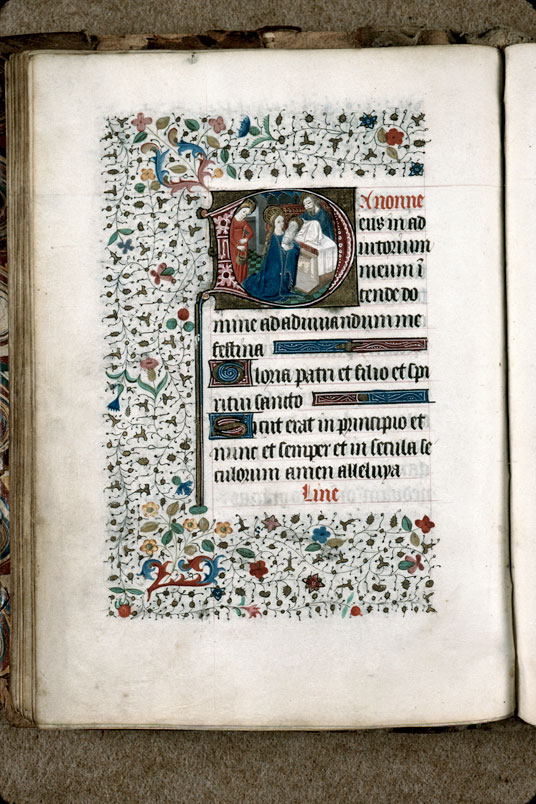 A nonne
Deus in ad
iutorium
meum ī
tende do
mine ad adiuuandum me
festina
Gloria patri et filio et spi
ritui sancto
Sicut erat in principio et
nunc et semper et in secula se
culorum amen alleluya